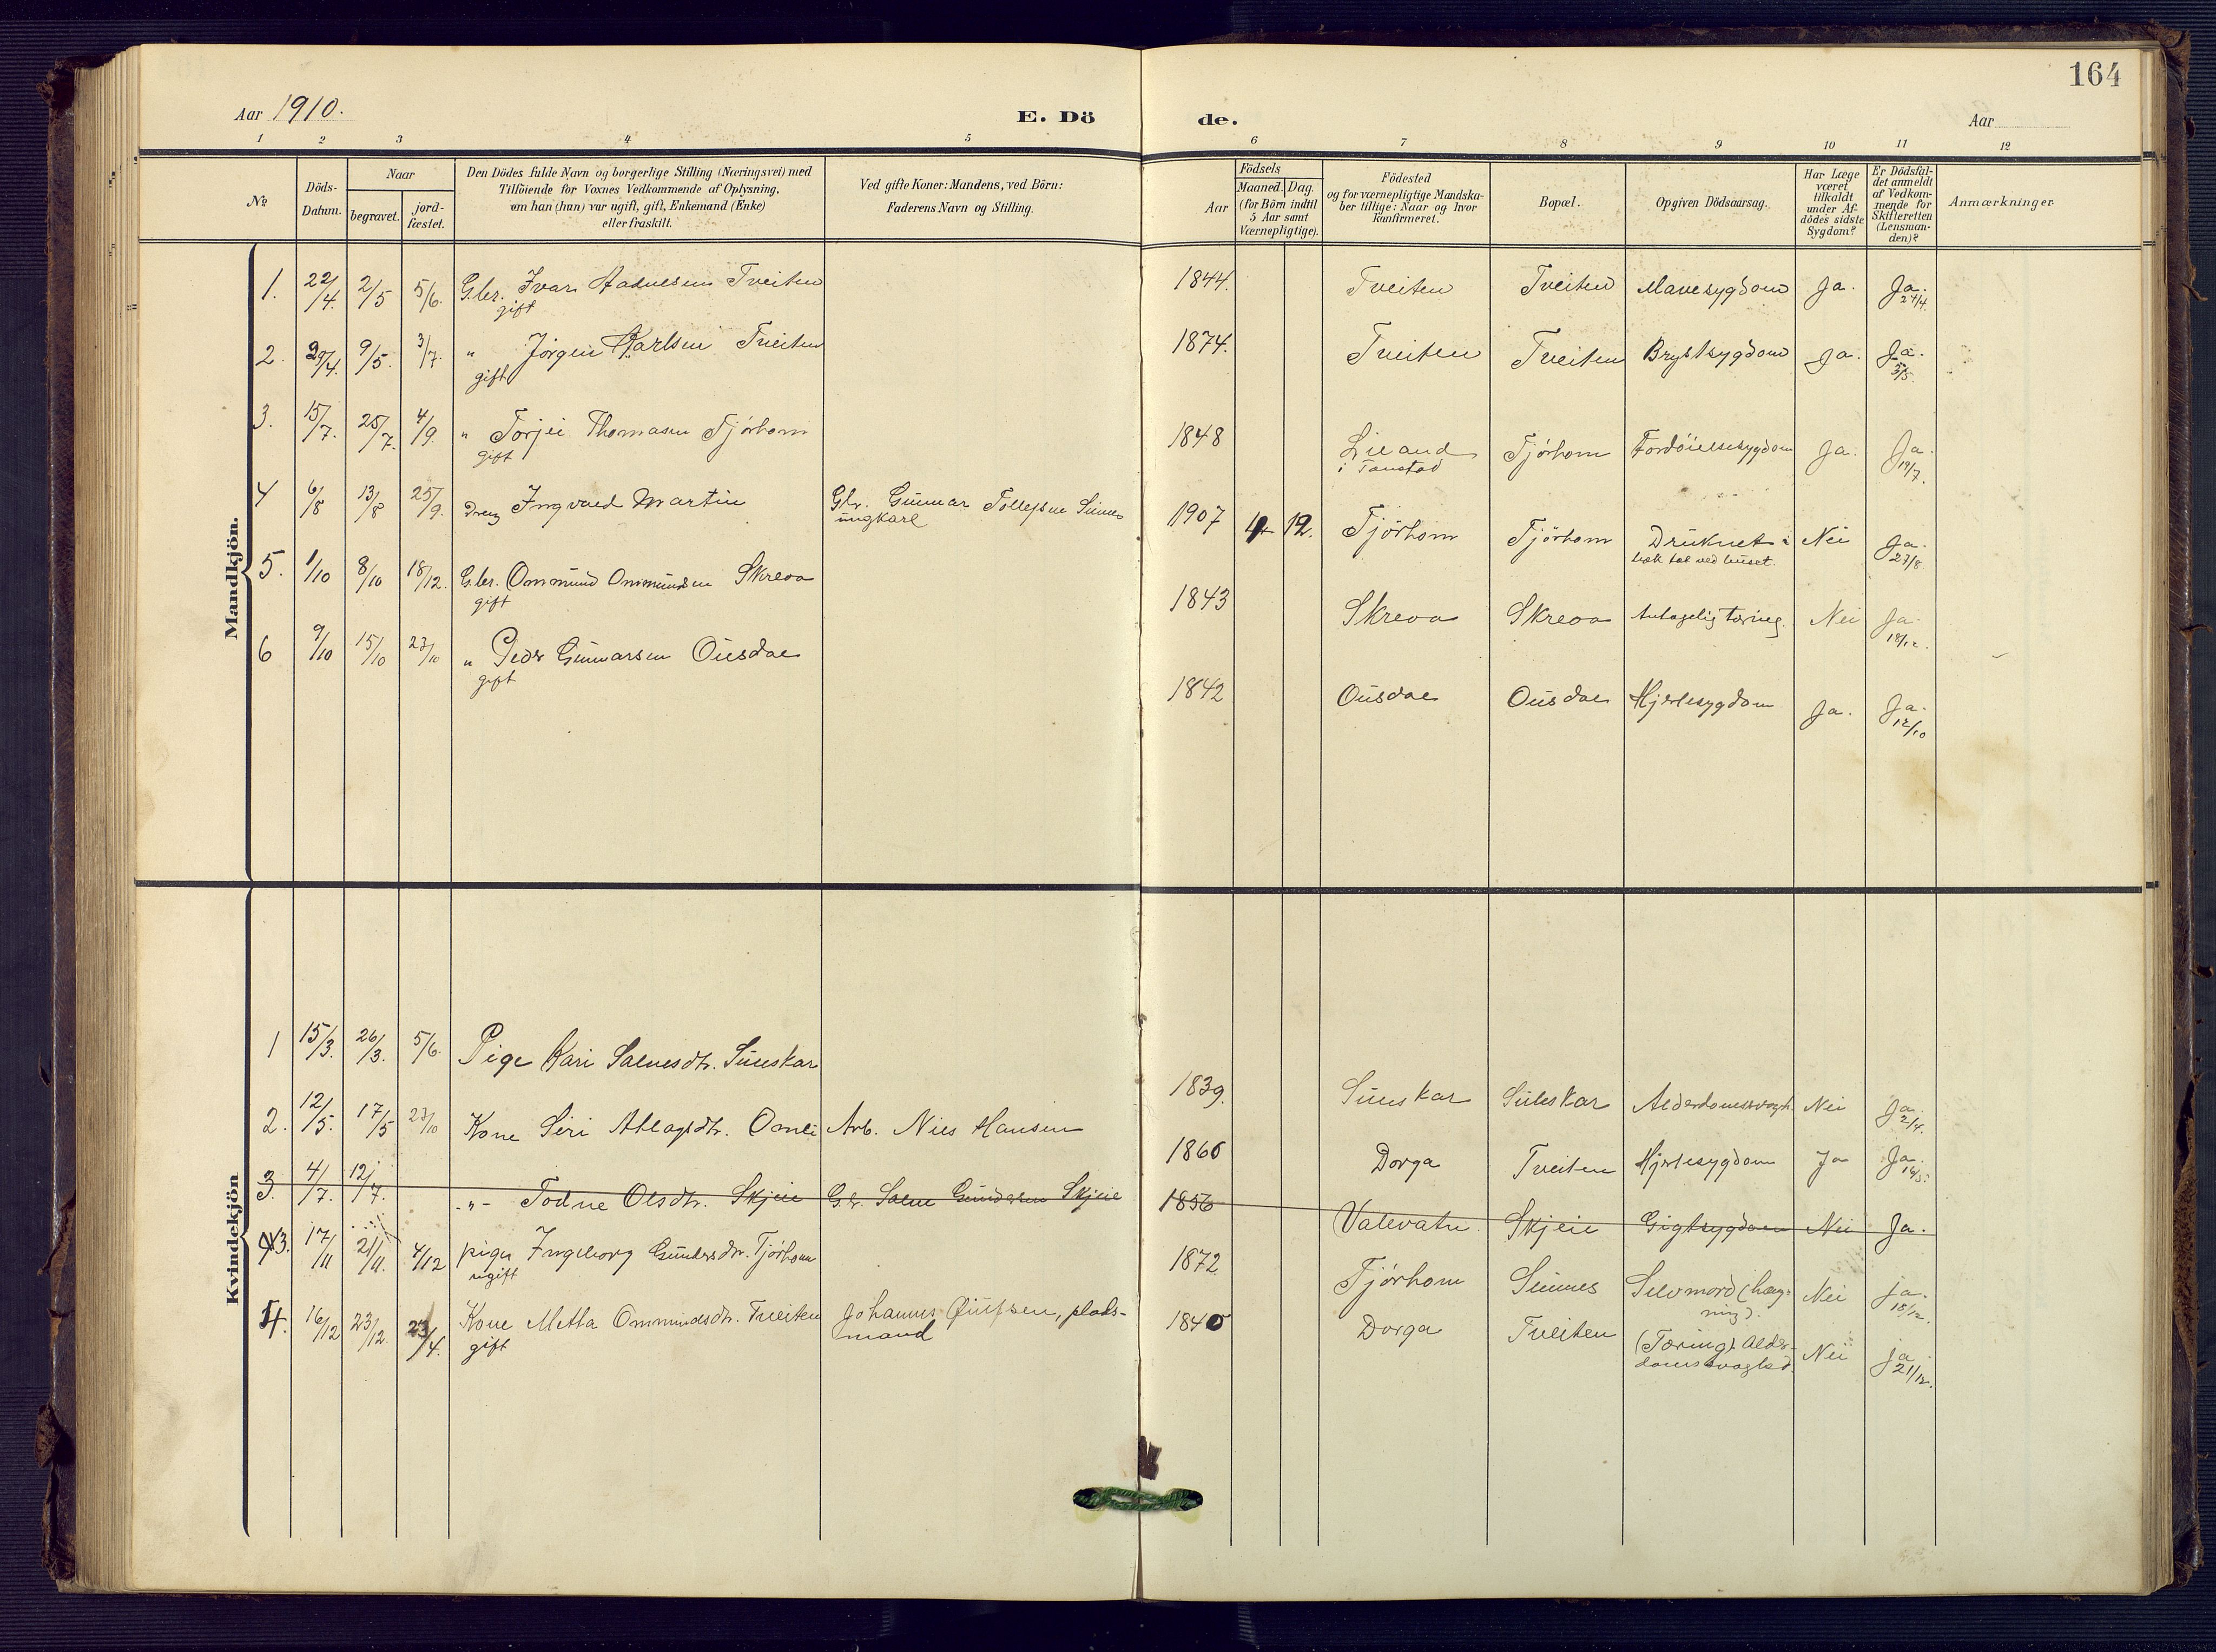 164
Aar 1910.
E. Dö de.
Aar
1 2 3 4 5 6 7 8 9 10 11 12
№
Döds-Datum.
Naar
begravet.
jord-fæstet.
Den Dödes fulde Navn og borgerlige Stilling (Næringsvei) med
Tilföiende for Voxnes Vedkommende af Oplysning,
om han (hun) var ugift, gift, Enkemand (Enke)
eller fraskilt.
Ved gifte Koner: Mandens, ved Börn:
Faderens Navn og Stilling.
Födsels
Aar
Maaned. Dag.
(for Börn indtil
5 Aar samt
Værnepligtige).
Födested
og for værnepligtige Mandska-
ber tillige: Naar og hvor
konfirmeret.
Bopæl.
Opgiven Dödsaarsag.
Har Læge
været
tilkaldt
under Af-
dödes sidste
Sygdom?
Er Dödsfal-
det anmeldt
af Vedkom-
mende for
Skifteretten
(Lensman-
den)?
Anmærkninger
Mandkjön.
1. 22/4. 2/5 5/6. Gbr. Ivar Aadnesen Tveiten 1844. Tveiten Tveiten Mavesygdom Ja. Ja.
gift 27/4.
2. 29/4. 9/5. 3/7. " Jørgen Karlsen Tveiten 1874. Tveiten Tveiten Brystsygdom Ja. Ja.
gift 3/5.
3. 15/7. 25/7. 4/9. " Torjei Thomasen Tjørhom 1848 Lieand Tjørhom Fordöielsesygdom Ja. Ja
gift i Tonstad 19/7.
4 6/8 13/8 25/9. Dreng Ingvald Martin Gbr. Gunnar Tollefsen Sinnes 1907 4 12. Tjørhom Tjørhom Druknet i Nei Ja.
ungkarl bæk ved huset. 27/8.
5. 1/10 8/10 18/12. Gbr. Ommund Ommundsen Skreaa 1843 Skreaa Skreaa Antagelig tæring. Nei Ja.
gift 18/12.
6 9/10 15/10 23/10 " Peder Gunnarsen Ousdal 1842 Ousdal Ousdal Hjertesygdom Ja. Ja.
gift 12/10
Kvindekjön
1 15/3. 26/3. 5/6. Pige Kari Salvesdtr. Suleskar 1839. Suleskar Suleskar Alderdomssvagh. Nei Ja.
2/4.
2. 12/5. 17/5 23/10 Kone Siri Atlagsdtr. Omli Arb. Nils Hansen 1860 Dorga Tveiten Hjertesygdom Ja Ja.
14/5.
3. 4/7. 12/7. -"- Todne Olsdtr. Skjeie G.br. Salve Gundersen Skjeie 1856 Valevatn Skjeie Gigtsygdom Nei Ja.
3. 17/11 21/11. 4/12 pige Ingeborg Gundersdtr. Tjørhom 1872 Tjørhom Sinnes Selvmord (hæng- Nei ja.
ugift ning). 18/12.
4. 16/12 23/12. 23/4. Kone Metta Ommundsdtr. Tveiten Johannes, plads- 1840 Dorga Tveiten (Tæring) Alder- Nei ja
gift mand domssvaghed. 21/12.